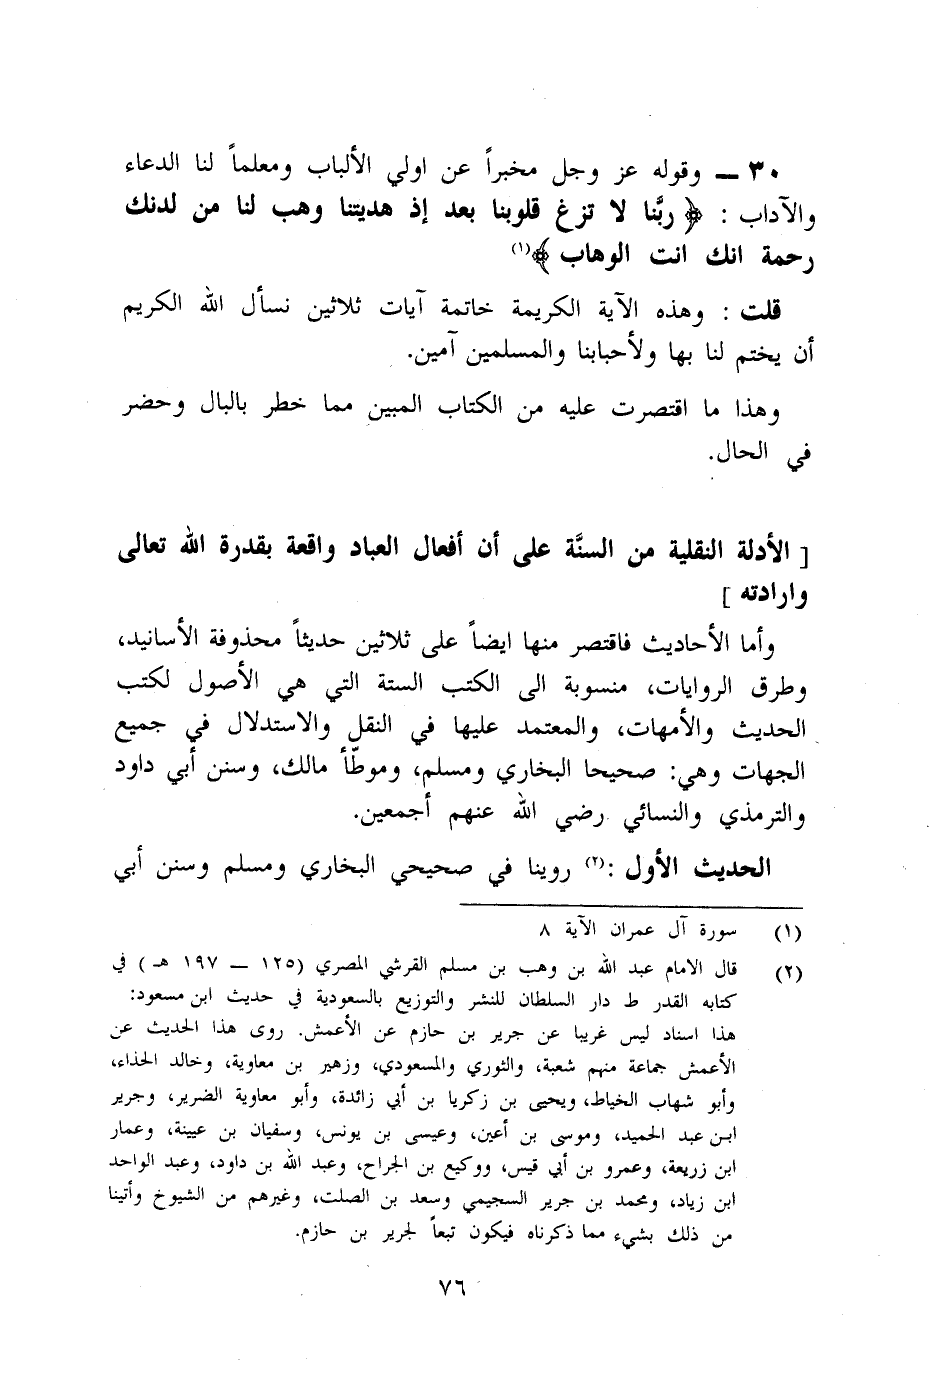 ٣٠ — وقوله عز وجل مخبراً عن اولي الألباب ومعلماً لنا الدعاء
والآداب : ﴿ ربَّنا لا تزغ قلوبنا بعد إذ هديتنا وهب لنا من لدنك
رحمة انك انت الوهاب ﴾(١)
قلت : وهذه الآية الكريمة خاتمة آيات ثلاثين نسأل الله الكريم
أن يختم لنا بها ولأحبابنا والمسلمين آمين.
وهذا ما اقتصرت عليه من الكتاب المبين مما خطر بالبال وحضر
في الحال.
[ الأدلة النقلية من السنَّة على أن أفعال العباد واقعة بقدرة الله تعالى
وارادته ]
وأما الأحاديث فاقتصر منها ايضاً على ثلاثين حديثاً محذوفة الأسانيد،
وطرق الروايات، منسوبة الى الكتب الستة التي هي الأصول لكتب
الحديث والأمهات، والمعتمد عليها في النقل والاستدلال في جميع
الجهات وهي: صحيحا البخاري ومسلم، وموطّأ مالك، وسنن أبي داود
والترمذي والنسائي رضي الله عنهم أجمعين.
الحديث الأول :(٢) روينا في صحيحي البخاري ومسلم وسنن أبي
(١) سورة آل عمران الآية ٨
(٢) قال الامام عبد الله بن وهب بن مسلم القرشي المصري (١٢٥ — ١٩٧ هـ) في
كتابه القدر ط دار السلطان للنشر والتوزيع بالسعودية في حديث ابن مسعود:
هذا اسناد ليس غريبا عن جرير بن حازم عن الأعمش. روى هذا الحديث عن
الأعمش جماعة منهم شعبة، والثوري والمسعودي، وزهير بن معاوية، وخالد الحذاء،
وأبو شهاب الخياط، ويحيى بن زكريا بن أبي زائدة، وأبو معاوية الضرير، وجرير
ابن عبد الحميد، وموسى بن أعين، وعيسى بن يونس، وسفيان بن عيينة، وعمار
ابن زريعة، وعمرو بن أبي قيس، ووكيع بن الجراح، وعبد الله بن داود، وعبد الواحد
ابن زياد، ومحمد بن جرير السجيمي وسعد بن الصلت، وغيرهم من الشيوخ وأتينا
من ذلك بشيء مما ذكرناه فيكون تبعاً لجرير بن حازم.
٧٦